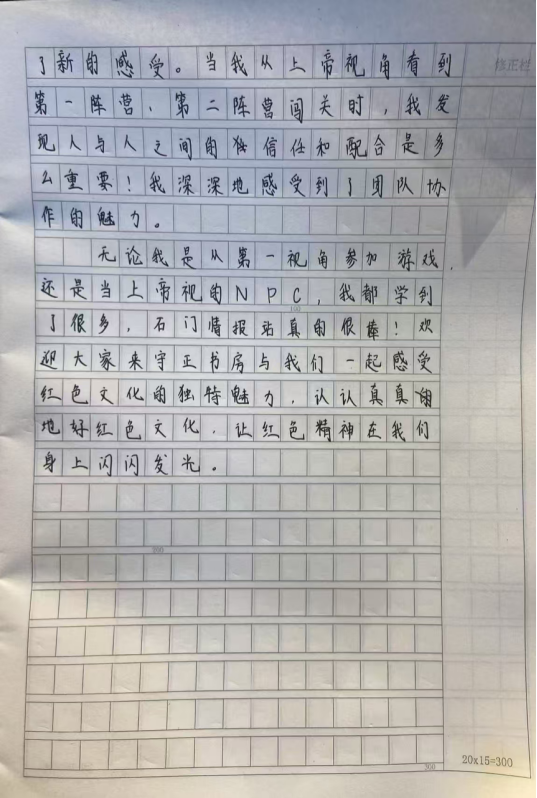 了新的感受。当我从上帝视角看到
修正栏
第一阵营、第二阵营闯关时，我发
现人与人之间的信任和配合是多
么重要！我深深地感受到了团队协
作的魅力。
无论我是从第一视角参加游戏，
还是当上帝视的NPC，我都学到
100
了很多，石门情报站真的很棒！欢
迎大家来守正书房与我们一起感受
红色文化的独特魅力，认认真真的
地好红色文化，让红色精神在我们
身上闪闪发光。
200
300
20x15=300